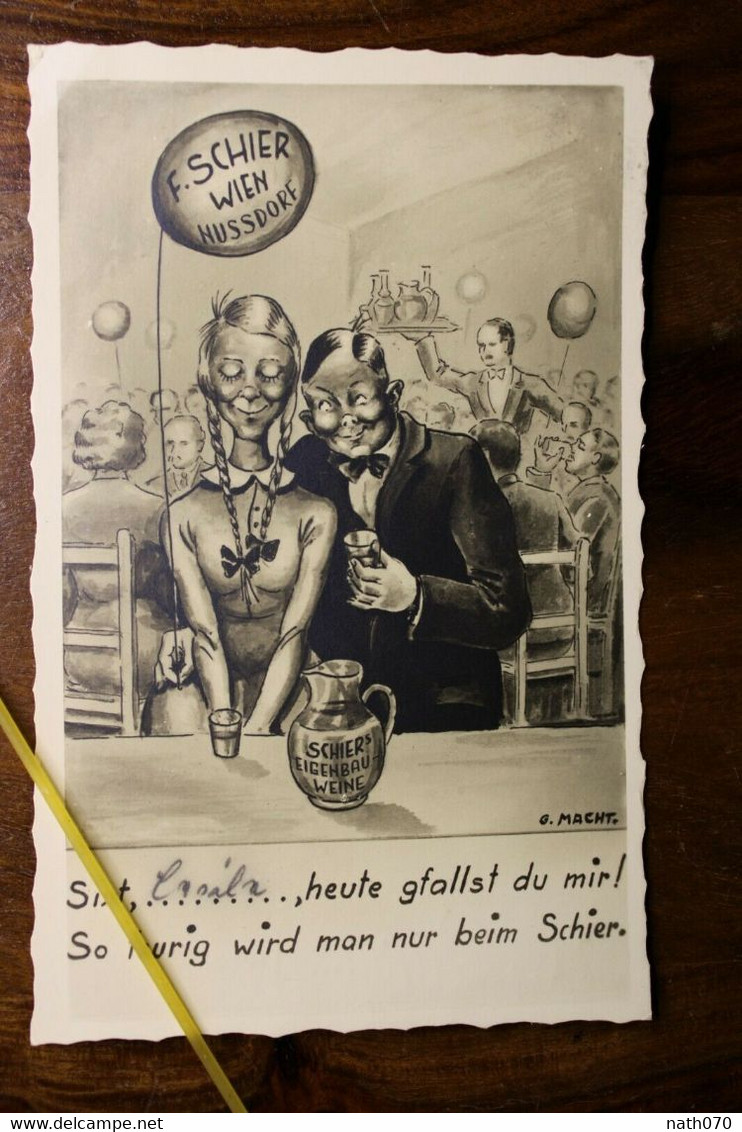 F. SCHIER
WIEN
NUSSDORF
SCHIERS
EIGENBAU-
WEINE
G. MACHT.
heute gfallst du mir!
So wird man nur beim Schier.
delcampe.net
nath070